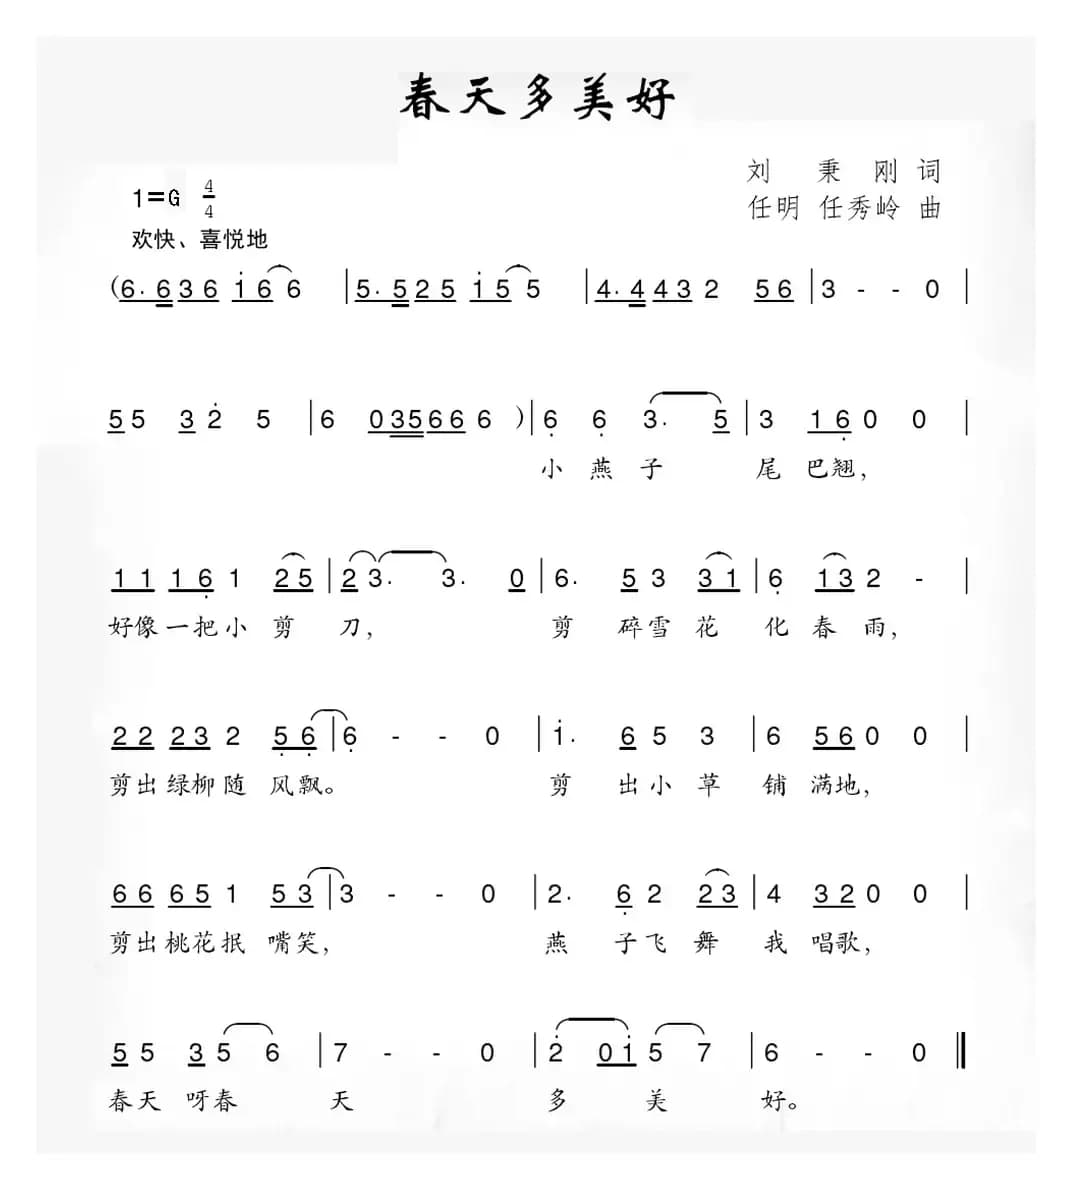 春天多美好
刘 秉 刚 词
1=G 4/4
任明 任秀岭 曲
欢快、喜悦地
(6. 6 3 6 i 6 6 | 5. 5 2 5 i 5 5 | 4. 4 4 3 2 5 6 | 3 - - 0 |
5 5 3 2̇ 5 | 6 0 3 5 6 6 6 ) | 6̣ 6̣ 3. 5 | 3 1 6̣ 0 0 |
小 燕 子 尾 巴 翘，
1 1 1 6̣ 1 2 5 | 2 3. 3. 0 | 6. 5 3 3 1 | 6̣ 1 3 2 - |
好像一把小 剪 刀， 剪 碎雪 花 化 春 雨，
2 2 2 3 2 5̣ 6̣ | 6̣ - - 0 | i. 6 5 3 | 6 5 6 0 0 |
剪出绿柳随 风飘。 剪 出小 草 铺 满地，
6 6 6 5 1 5 3 | 3 - - 0 | 2. 6̣ 2 2 3 | 4 3 2 0 0 |
剪出桃花抿 嘴笑， 燕 子飞 舞 我 唱歌，
5 5 3 5 6 | 7 - - 0 | 2̇ 0 i 5 7 | 6 - - 0 ‖
春天 呀春 天 多 美 好。